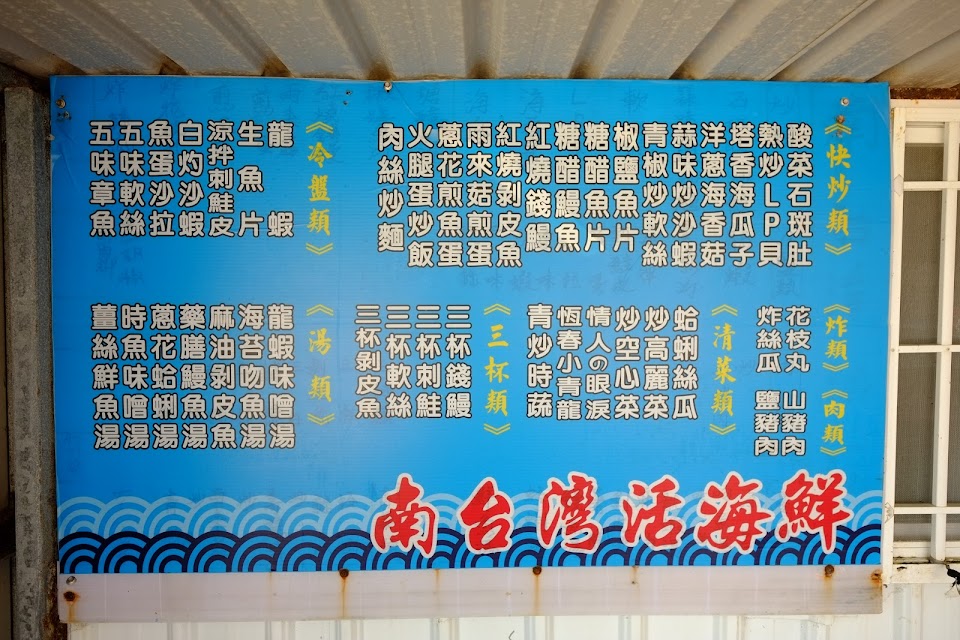 《快炒類》
酸菜石斑肚
熱炒LP貝
塔香海瓜子
洋蔥海香菇
蒜味炒沙蝦
青椒炒軟絲
椒鹽魚片
糖醋魚片
糖醋鰻魚
紅燒錢鰻
紅燒剝皮魚
雨來菇煎蛋
蔥花煎魚蛋
火腿蛋炒飯
肉絲炒麵
《冷盤類》
龍蝦
生魚片
涼拌刺鮭皮
白灼沙蝦
魚蛋沙拉
五味軟絲
五味章魚
《炸類》
花枝丸
炸絲瓜
《肉類》
山豬肉
鹽豬肉
《清菜類》
蛤蜊絲瓜
炒高麗菜
炒空心菜
情人の眼淚
恆春小青龍
青炒時蔬
《三杯類》
三杯錢鰻
三杯刺鮭
三杯軟絲
三杯剝皮魚
《湯類》
龍蝦味噌湯
海苔吻魚湯
麻油剝皮魚
藥膳鰻魚湯
蔥花蛤蜊湯
時魚味噌湯
薑絲鮮魚湯
南台灣活海鮮